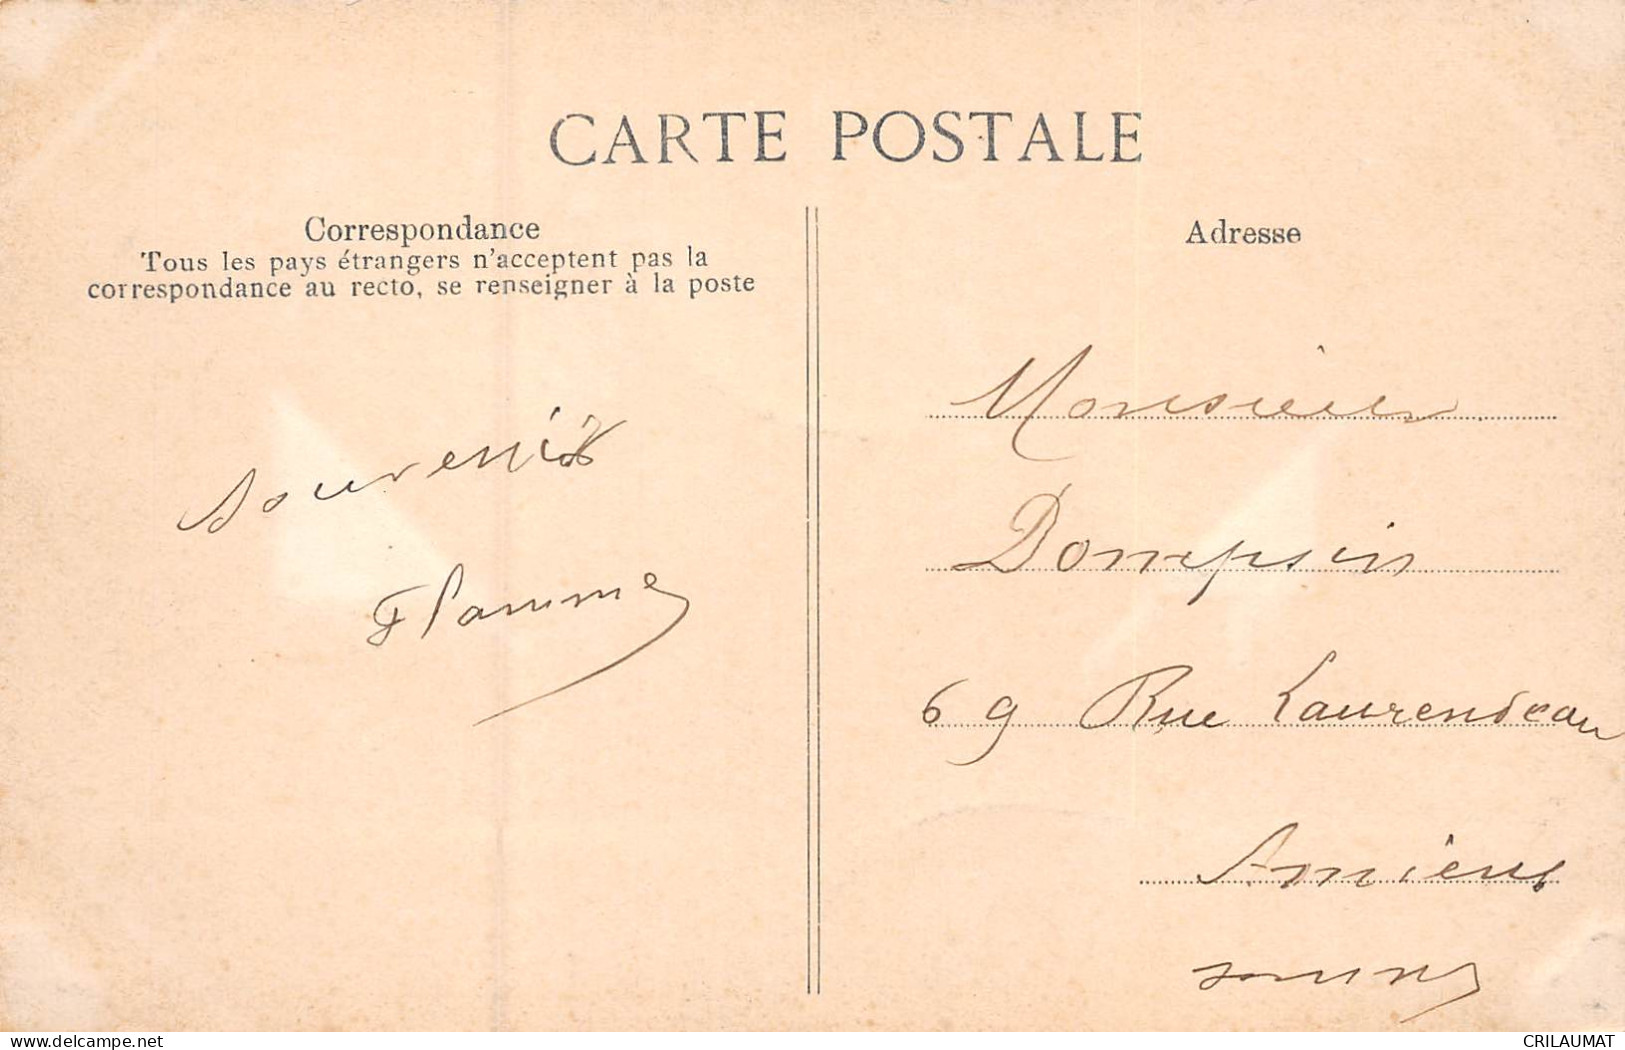 CARTE POSTALE
Correspondance
Tous les pays étrangers n'acceptent pas la
correspondance au recto, se renseigner à la poste
Souvenir
Flamme
Adresse
Monsieur
Dompsin
69 Rue Laurendeau
Amiens
Somme
www.delcampe.net
CRILAUMAT